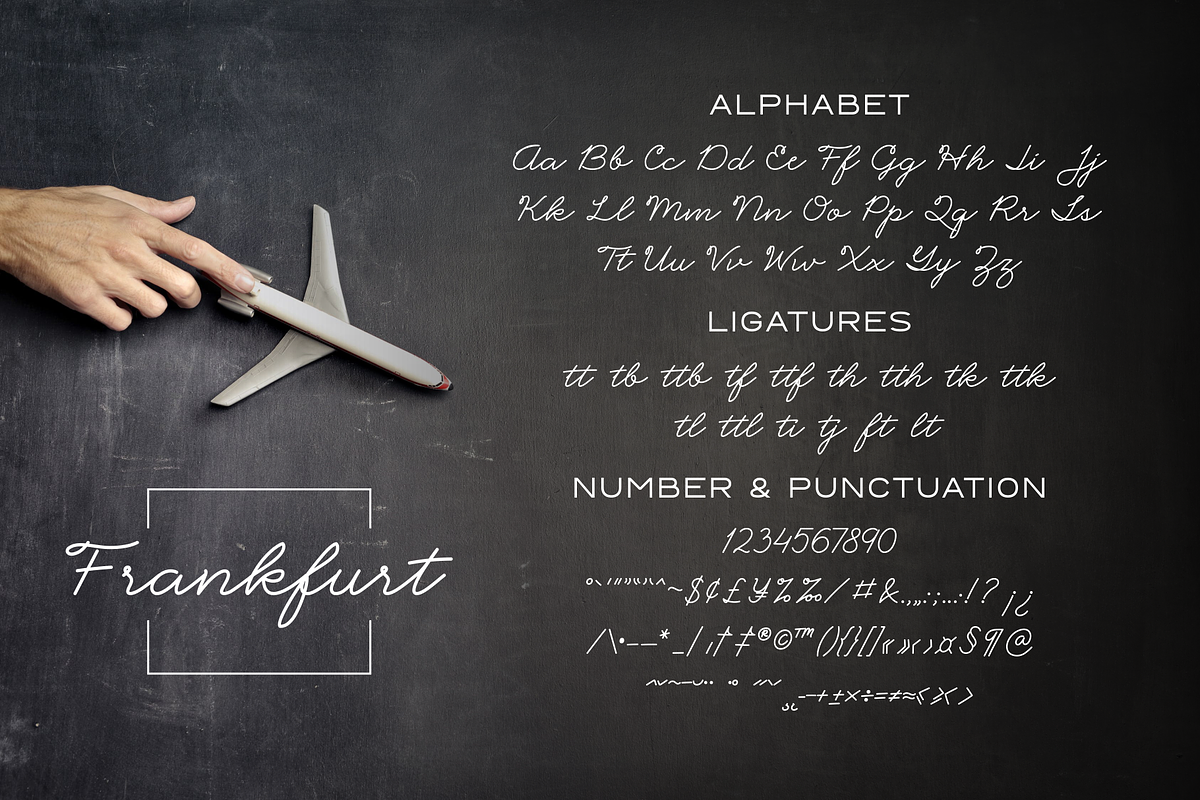 ALPHABET
Aa Bb Cc Dd Ee Ff Gg Hh Ii Jj
Kk Ll Mm Nn Oo Pp Qq Rr Ss
Tt Uu Vv Ww Xx Yy Zz
LIGATURES
tt tb ttb tf ttf th tth tk ttk
tl ttl ti tj ft lt
NUMBER & PUNCTUATION
1234567890
~$¢£¥%‰/#&.,„:;…·!?¡¿
/\•–—*_|¦†‡®©™(){}[]«»‹›¤§¶@
−+±×÷=≠≈
Frankfurt